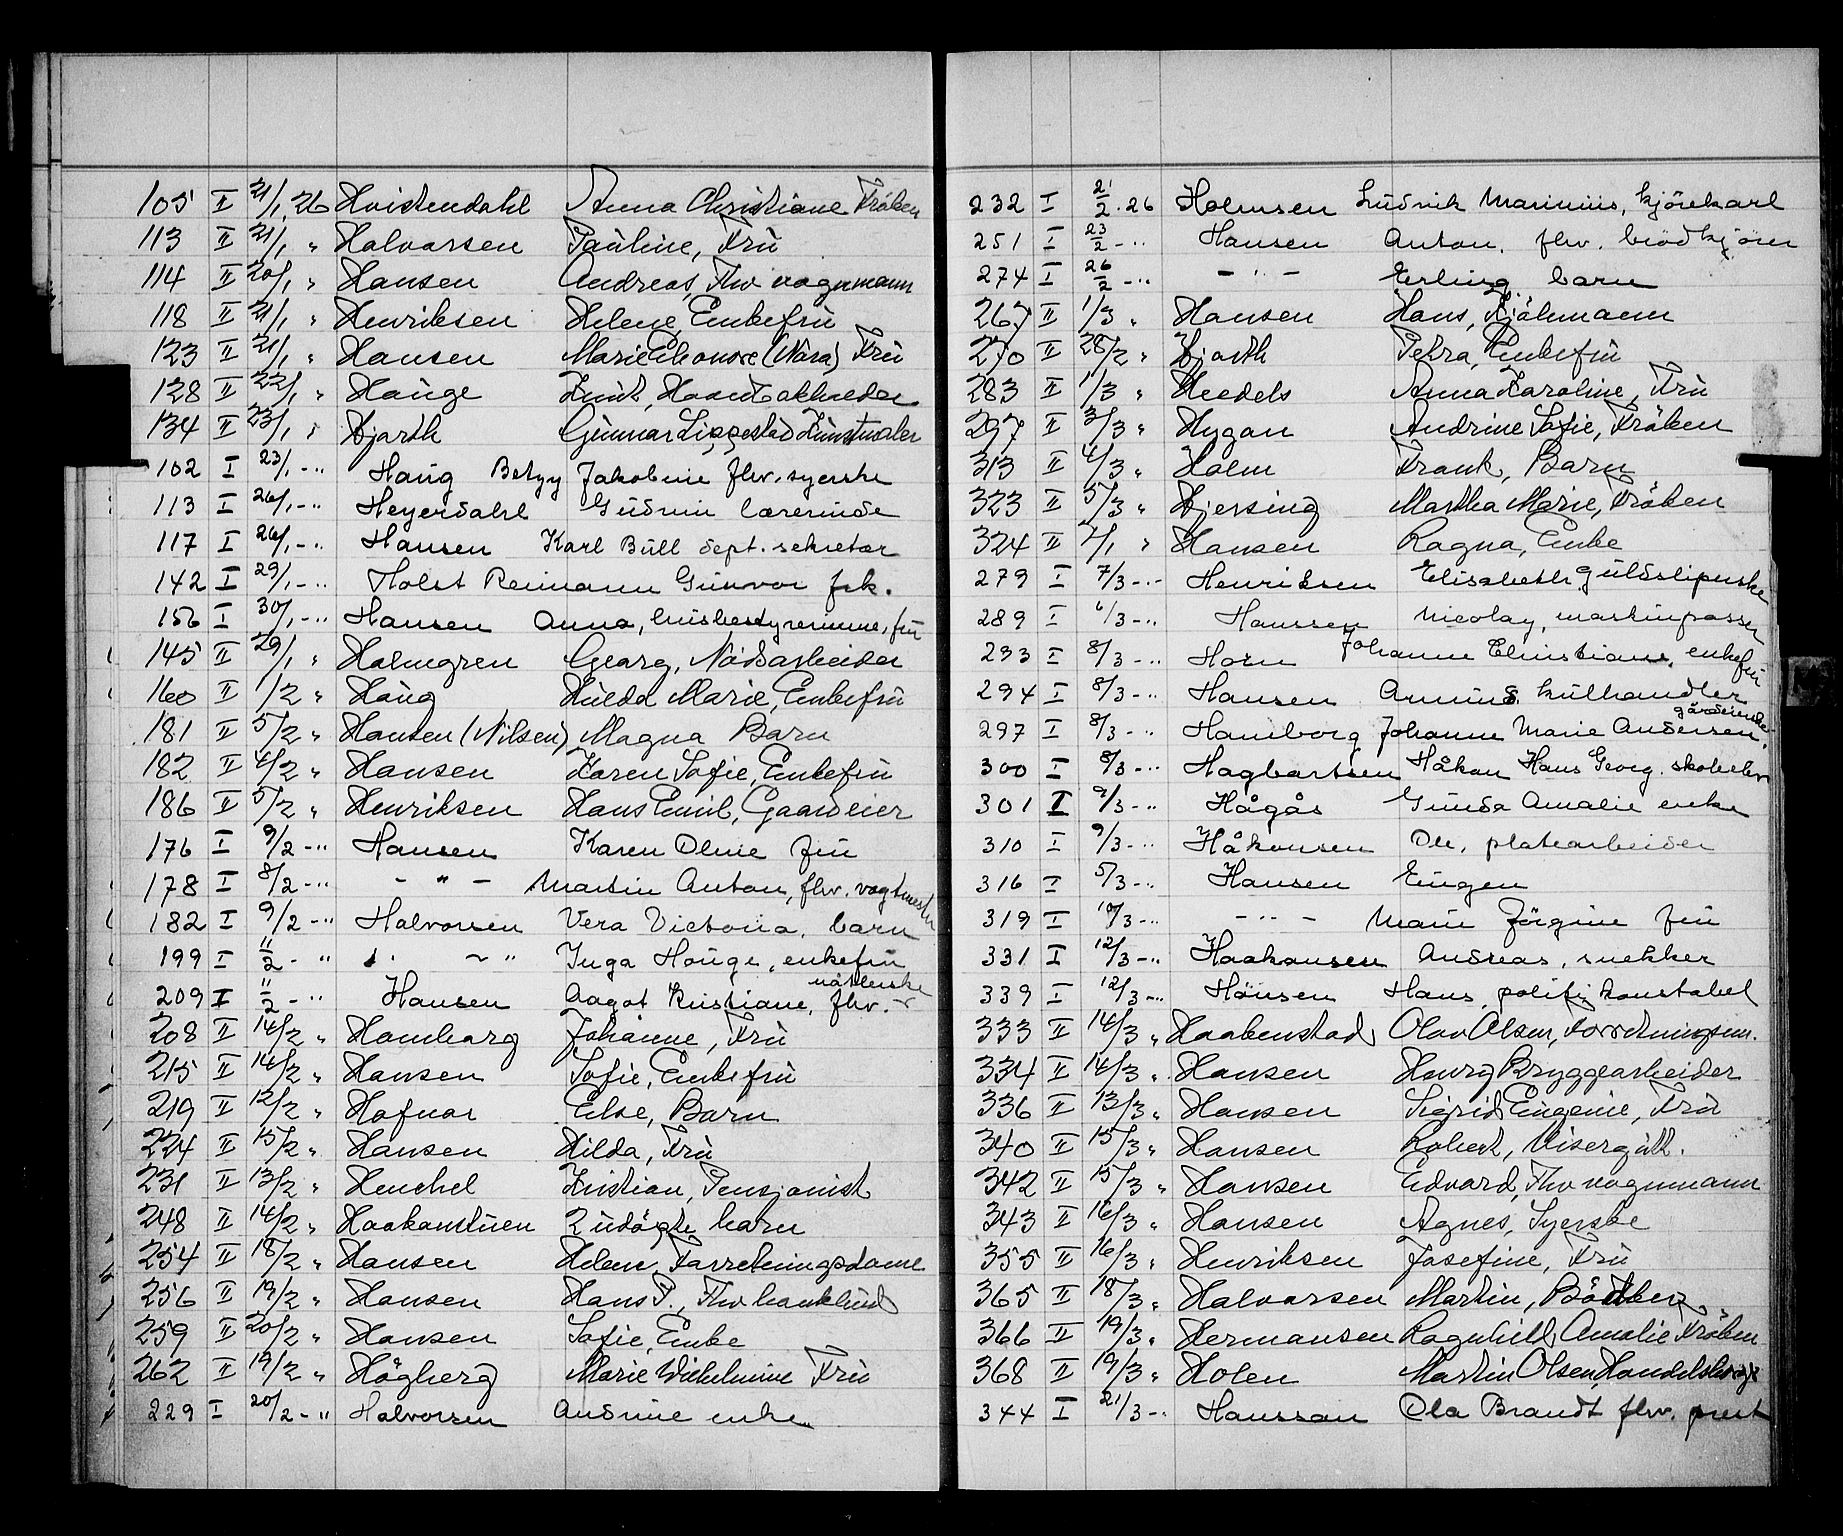 105 II 21/1 26 Hvistendahl Anna Christiane Frøken
113 II 21/1 " Halvorsen Pauline, Fru
114 II 20/1 " Hansen Andreas, Fhv vognmann
118 II 21/1 " Henriksen Helene, Enkefru
123 II 21/1 " Hansen Marie Eleonore (Nora) Fru
128 II 22/1 " Hauge Knut,
134 II 23/1 " Hjorth Gunnar Lippestad Kunstmaler
102 I 23/1 -" Haug Betzy Jakobine fhv. syerske
113 I 26/1 -" Heyerdahl Gudrun lærerinde
117 I 26/1 -" Hansen Karl Bull dept. sekretær
142 I 29/1 -" Holst Reimann Gunvor frk.
156 I 30/1 -" Hansen Anna, husbestyrerinne, fru
145 II 29/1 " Holmgren Georg, Nödsarbeider
160 II 1/2 " Haug Hulda Marie, Enkefru
181 II 5/2 " Hansen (Nilsen) Magna Barn
182 II 4/2 " Hansen Karen Sofie, Enkefru
186 II 5/2 " Henriksen Hans Emil, Gaardeier
176 I 9/2 -" Hansen Karen Oline fru
178 I 8/2 -" - " - Martin Anton, fhv. vogtmester
182 I 9/2 -" Halvorsen Vera Victoria, barn
199 I 11/2 -" " Inga Hauge, enkefru
209 I 11/2 -" Hansen Aagot Kristiane, fhv. nåtlerske
208 II 14/2 " Homborg Johanne, Fru
215 II 14/2 " Hansen Sofie, Enkefru
219 II 12/2 " Hofnor Else, Barn
224 II 15/2 " Hansen Hilda, Fru
231 II 13/2 " Henchel Kristian, Pensjonist
248 II 14/2 " Haakonstuen 2 udøgte barn
254 II 18/2 " Hansen Helene, Forretningsdame
256 II 19/2 " Hansen Hans P., Fhv bankbud
259 II 20/2 " Hansen Sofie, Enke
262 II 19/2 " Högberg Marie Wilhelmine Fru
229 I 20/2 -" Halvorsen Andrine enke
232 I 21/2 . 26 Holmsen Ludvik Marinius, kjörekarl
251 I 23/2 -" Hansen Anton, fhv. brødkjører
274 I 26/2 -" - " - Erling barn
267 II 1/3 " Hansen Hans, Sjömann
270 II 28/2 " Hjorth Petra, Enkefru
283 II 1/3 " Heedels Anna Karoline, Fru
297 II 3/3 " Hygan Andrine Sofie, Fröken
313 II 4/3 " Holm Frank, Barn
323 II 5/3 " Hjersing Martha Marie, Fröken
324 II 2/1 " Hansen Ragna, Enke
279 I 7/3 -" Henriksen Elisabeth gulsliperske
289 I 6/3 -" Hanssen Nicolay, maskinpasser
293 I 8/3 -" Horn Johanne Christiane, enkefru
294 I 8/3 -" Hansen Amund kulhandler
297 I 8/3 -" Hamborg Johanne Marie Andersen, gårdeierske
300 I 8/3 -" Hagbartsen Håkon Hans Georg. skoleelev
301 I 9/3 -" Hågås Gunda Amalie enke
310 I 9/3 -" Håkonsen Ole, platearbeider
316 I 5/3 -" Hansen Eugen
319 I 10/3 -" - " - Marie Jörgine fru
331 I 12/3 -" Haakonsen Andreas, snekker
339 I 12/3 -" Hansen Hans, politi konstabel
333 II 14/3 " Haabenstad Olav Olsen, Forretningsm.
334 II 14/3 " Hansen Henry Bryggearbeider
336 II 13/3 " Hansen Sigrid Eugenie, Fru
340 II 15/3 " Hansen Robert, Visergutt.
342 II 15/3 " Hansen Edvard, Fhv vognmann
343 II 16/3 " Hansen Agnes, Syerske
355 II 16/3 " Henriksen Josefine, Fru
365 II 18/3 " Halvorsen Martin, Bödker
366 II 19/3 " Hermansen Ragnhild Amalie Fröken
368 II 19/3 " Holen Martin Olsen, Handelsborger
344 I 21/3 -" Hanssan Ola Brandt fhv. prest